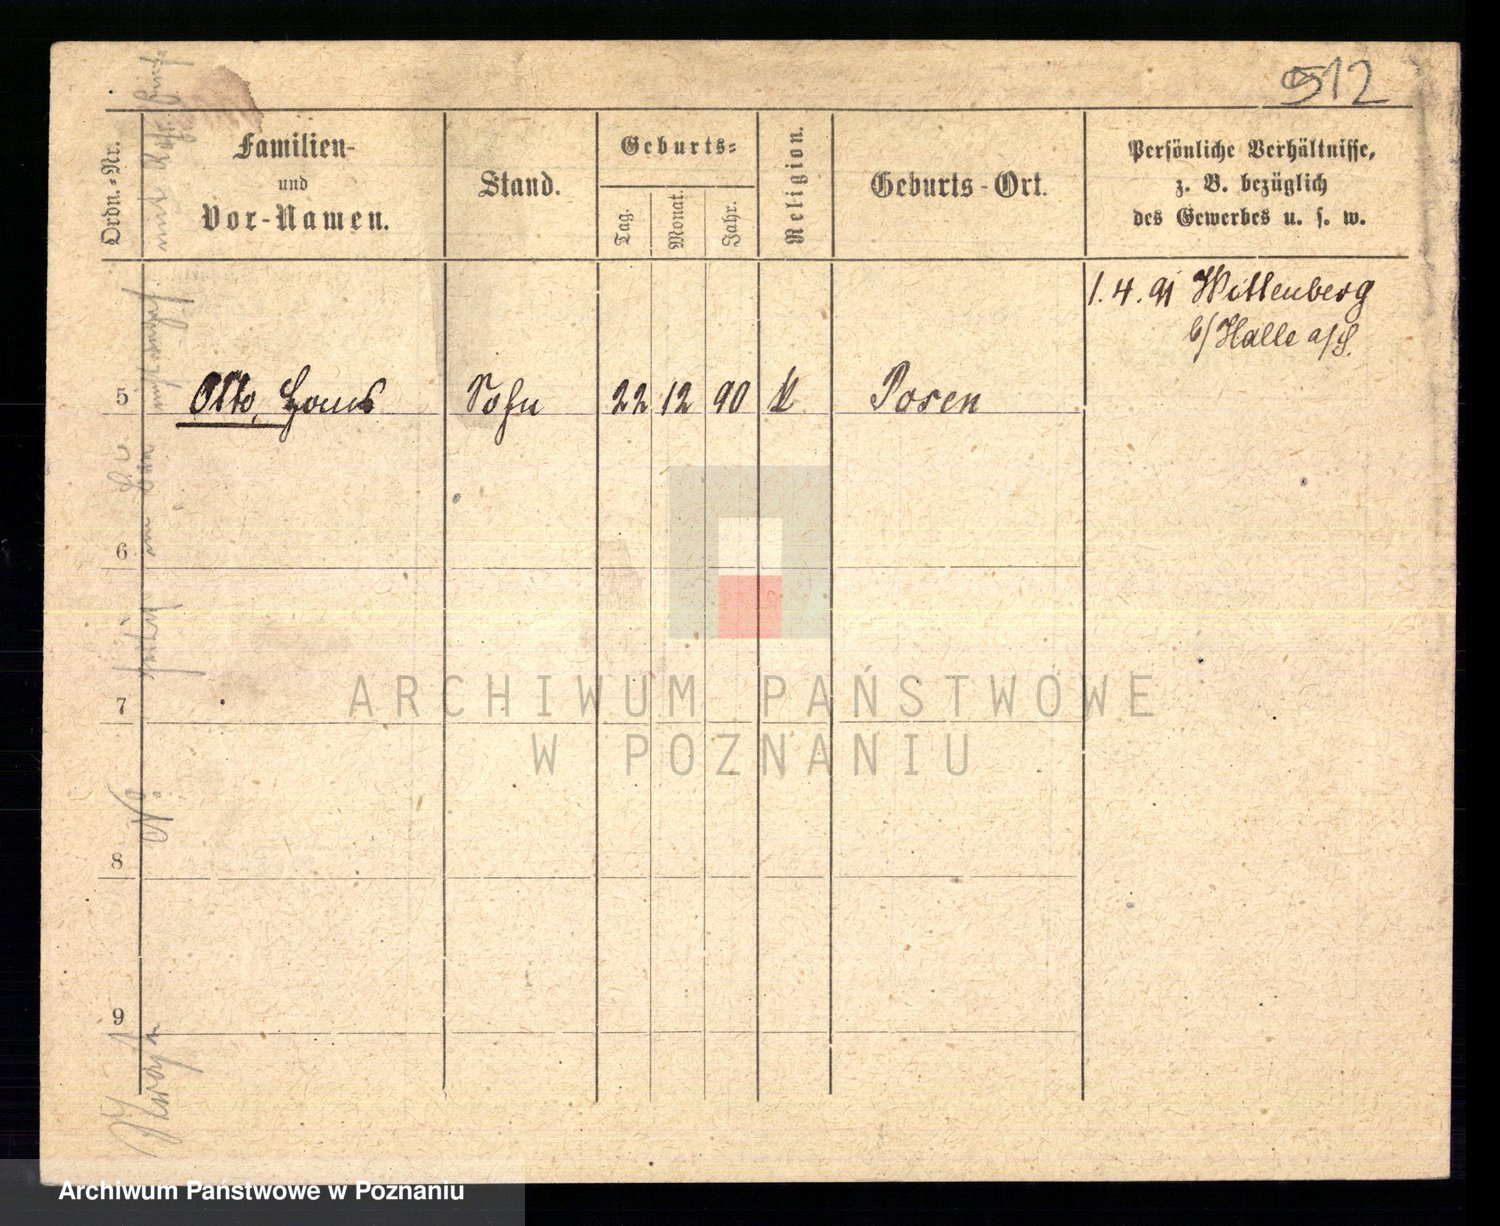 512
Ordn.-Nr.
Familien-
und
Vor-Namen.
Stand.
Geburts-
Tag.
Monat.
Jahr.
Religion.
Geburts-Ort.
Persönliche Verhältnisse,
z. B. bezüglich
des Gewerbes u. s. w.
1.4.91 Wittenberg
b/Halle a/S.
5 Otto, Hans Sohn 22 12 90 k Posen
6
7
8
9
ARCHIWUM PAŃSTWOWE
W POZNANIU
Archiwum Państwowe w Poznaniu